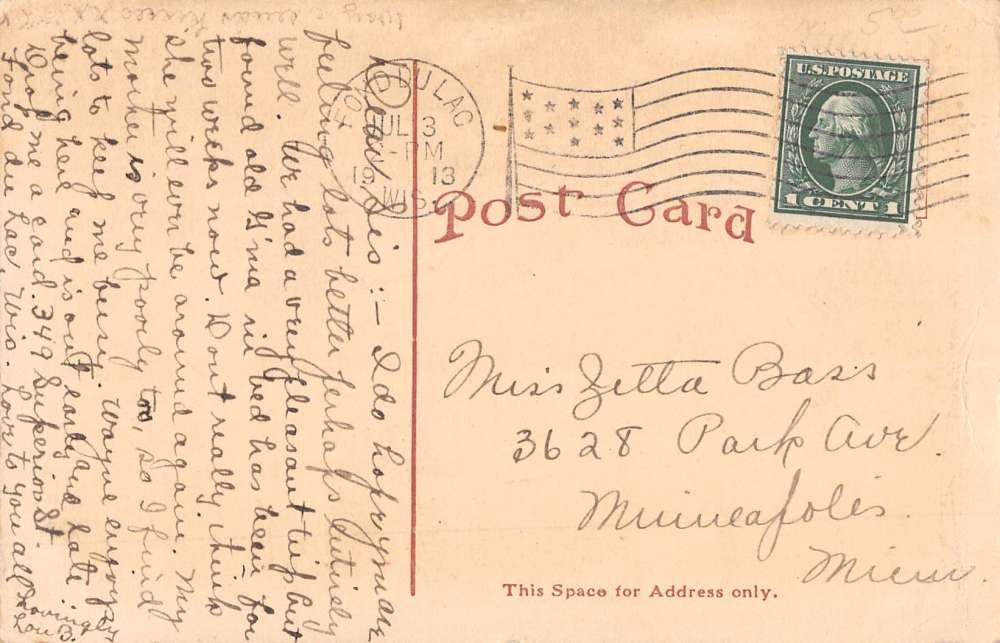 5¢
FOND DU LAC
JUL 3
-PM
1913
WIS.
U.S. POSTAGE
1 CENT 1
Post Card
Dear Sis :- I do hope you are
feeling lots better perhaps entirely
well. We had a very pleasant trip but
found old G'ma in bed has been for
two weeks now. Dont really think
she will ever be around again. My
mother is very poorly too, so I find
lots to keep me busy. Wayne enjoys
being here and is out early and late.
Drop me a card. 349 Superior St.
Fond du Lac, Wis. Love to you all
Lovingly
Lou B.
Miss Zetta Bass
3628 Park Ave.
Minneapolis.
Minn.
This Space for Address only.